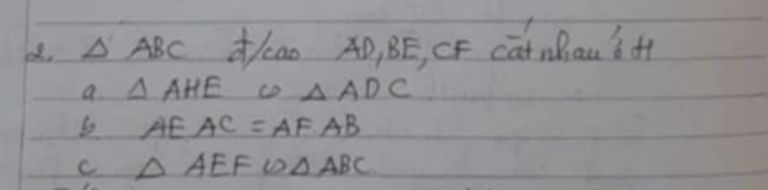 2. △ ABC đ/cao AD, BE, CF cắt nhau ở H
a △ AHE ∽ △ ADC
b AE AC = AF AB
c △ AEF ∽ △ ABC